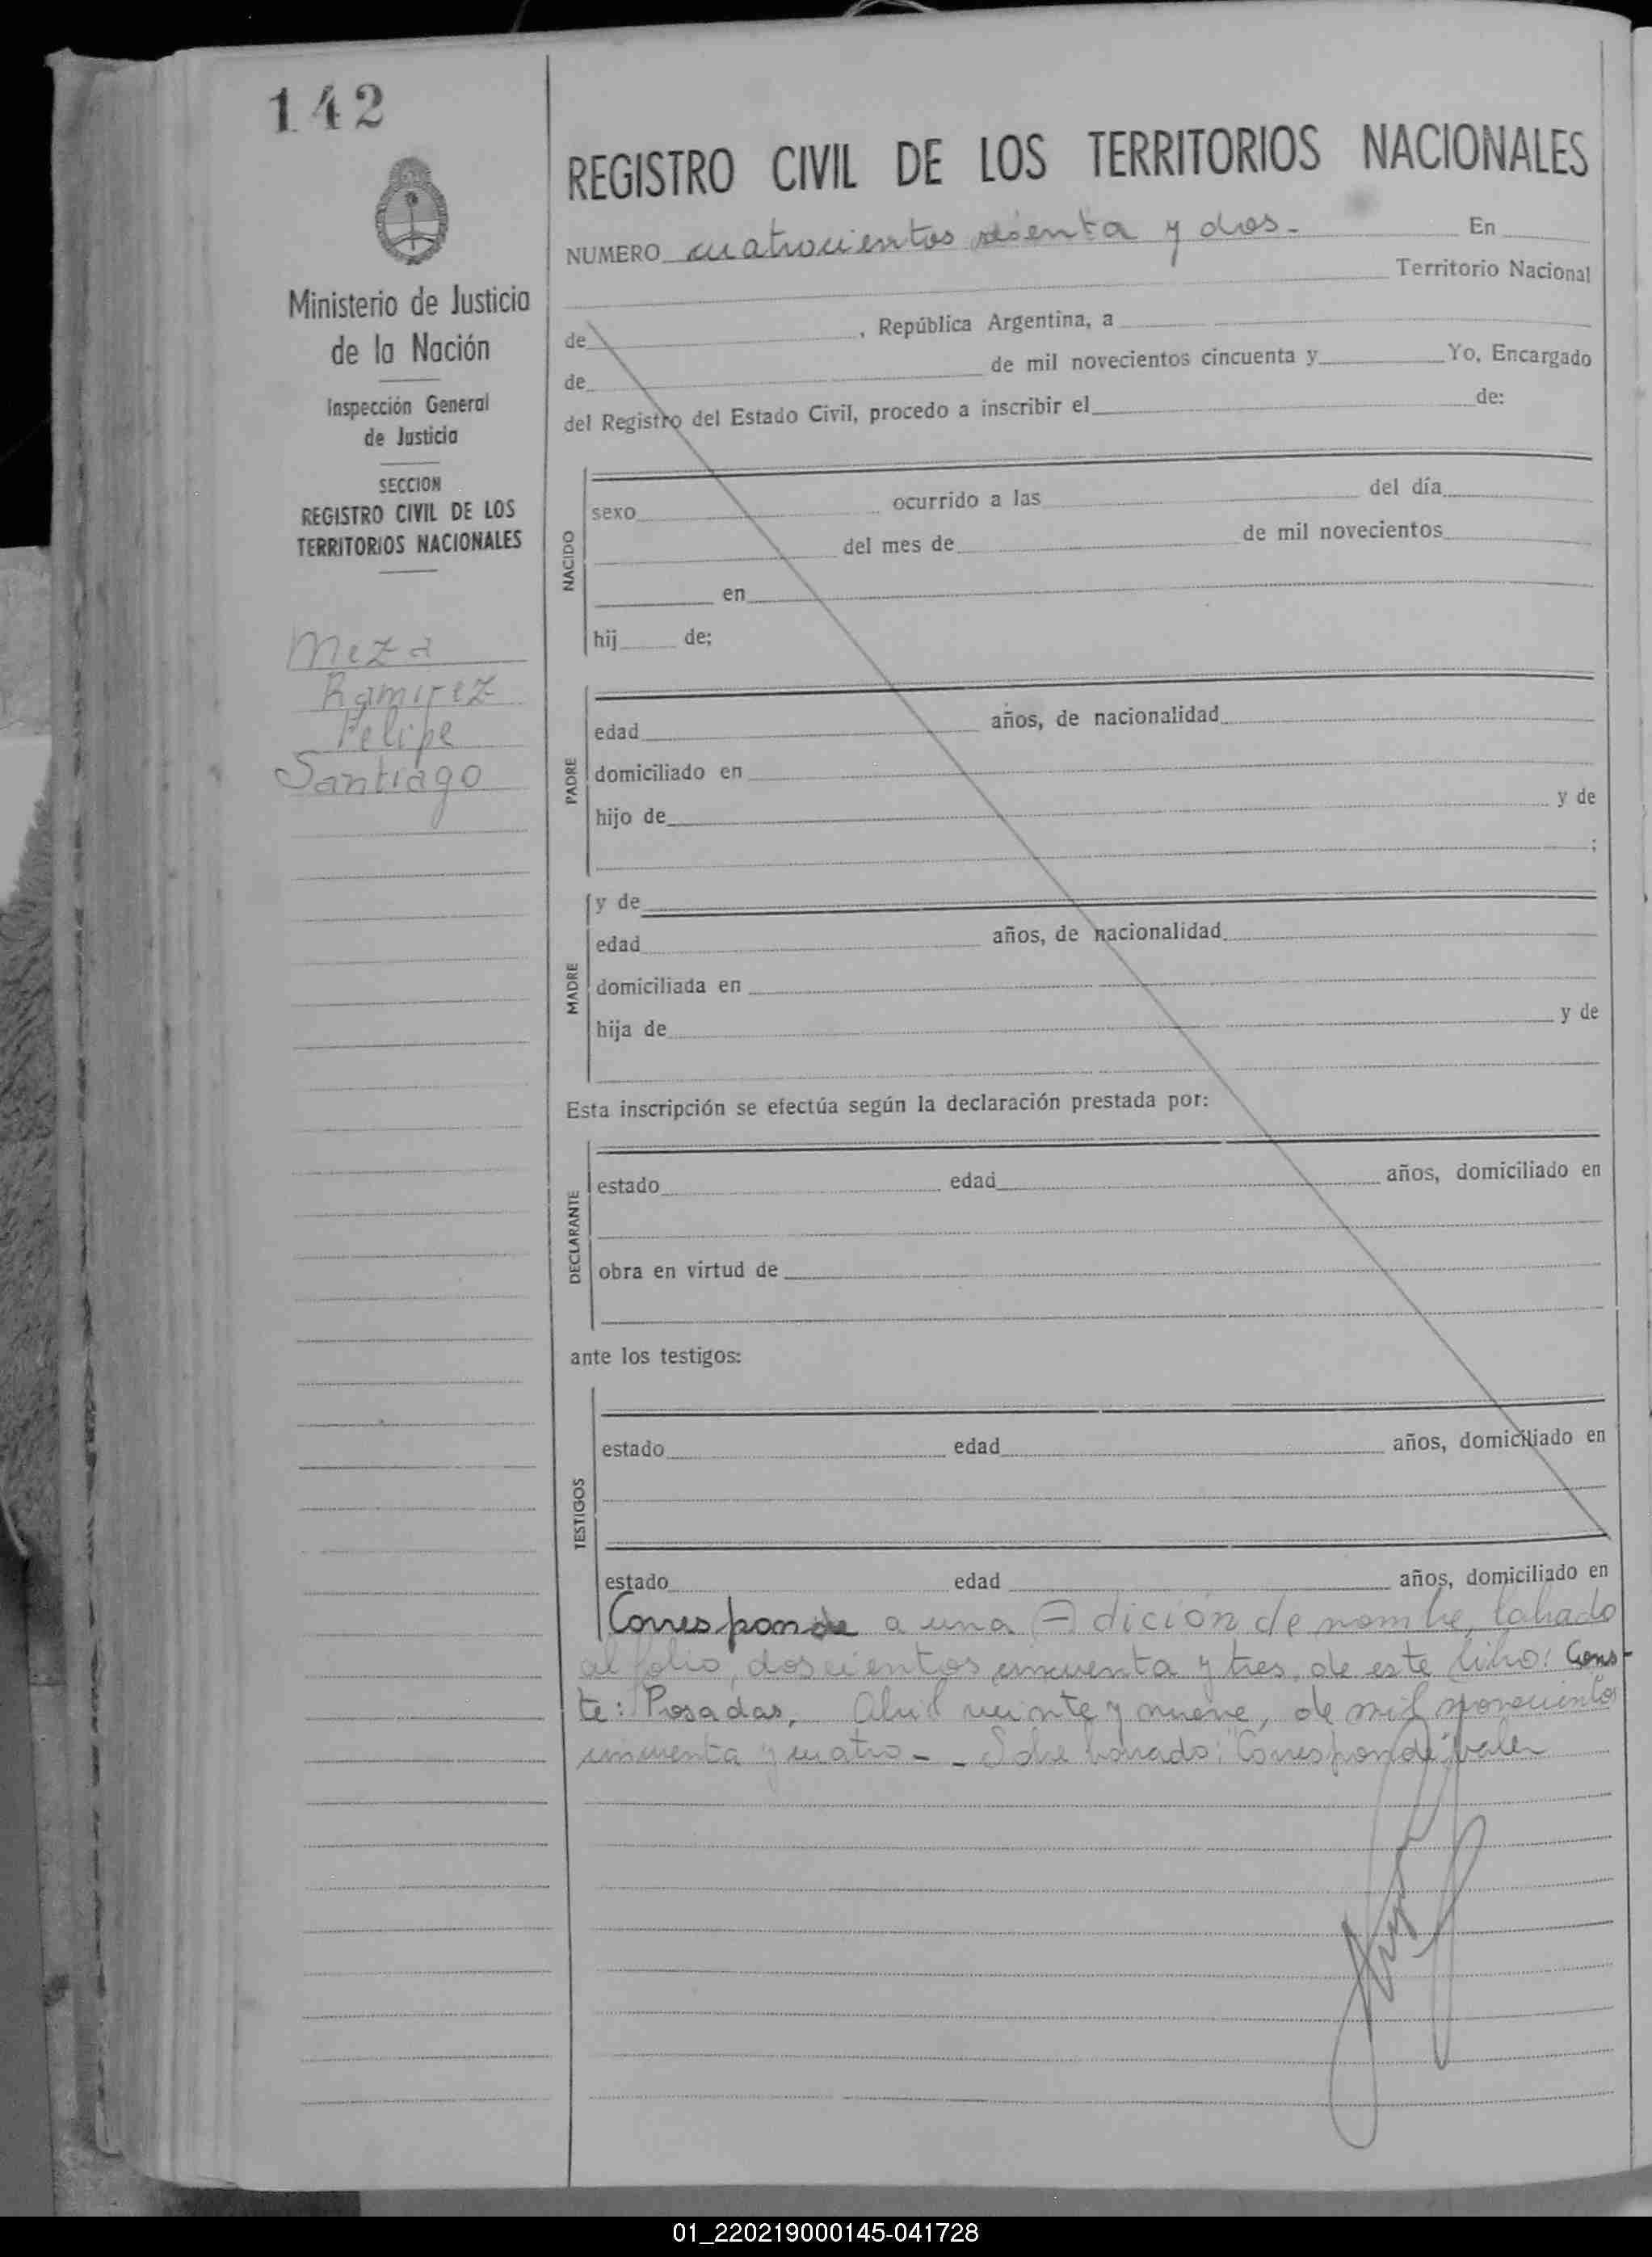 142
Ministerio de Justicia
de la Nación
Inspección General
de Justicia
SECCION
REGISTRO CIVIL DE LOS
TERRITORIOS NACIONALES
Meza
Ramirez
Felipe
Santiago
REGISTRO CIVIL DE LOS TERRITORIOS NACIONALES
NUMERO cuatrocientos sesenta y dos.- En
Territorio Nacional
de , República Argentina, a
de de mil novecientos cincuenta y Yo, Encargado
del Registro del Estado Civil, procedo a inscribir el de:
NACIDO
sexo ocurrido a las del día
del mes de de mil novecientos
en
hij de;
PADRE
edad años, de nacionalidad
domiciliado en
hijo de y de
;
MADRE
y de
edad años, de nacionalidad
domiciliada en
hija de y de
Esta inscripción se efectúa según la declaración prestada por:
DECLARANTE
estado edad años, domiciliado en
obra en virtud de
ante los testigos:
TESTIGOS
estado edad años, domiciliado en
estado edad años, domiciliado en
Corresponde a una Adición de nombre, labrado
al folio, doscientos cincuenta y tres, de este libro: Cons-
te: Posadas, Abril veinte y nueve, de mil novecientos
cincuenta y cuatro - - Sobre borrado: "Corresponde": vale
01_220219000145-041728